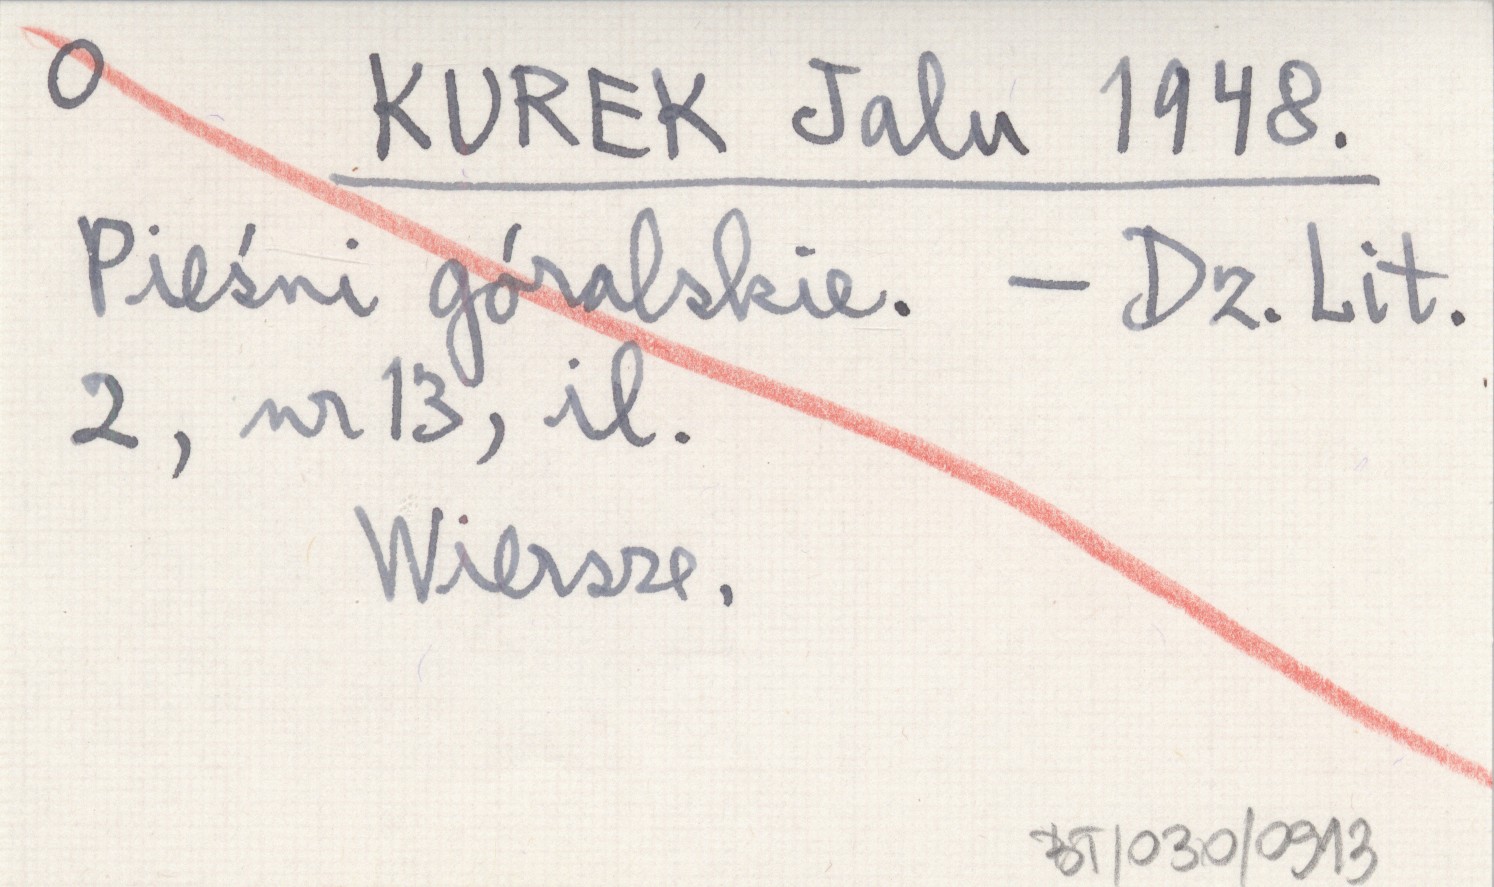 O KUREK Jalu 1948.
Pieśni góralskie. — Dz. Lit.
2, nr 13, il.
Wiersze.
BT/030/0913